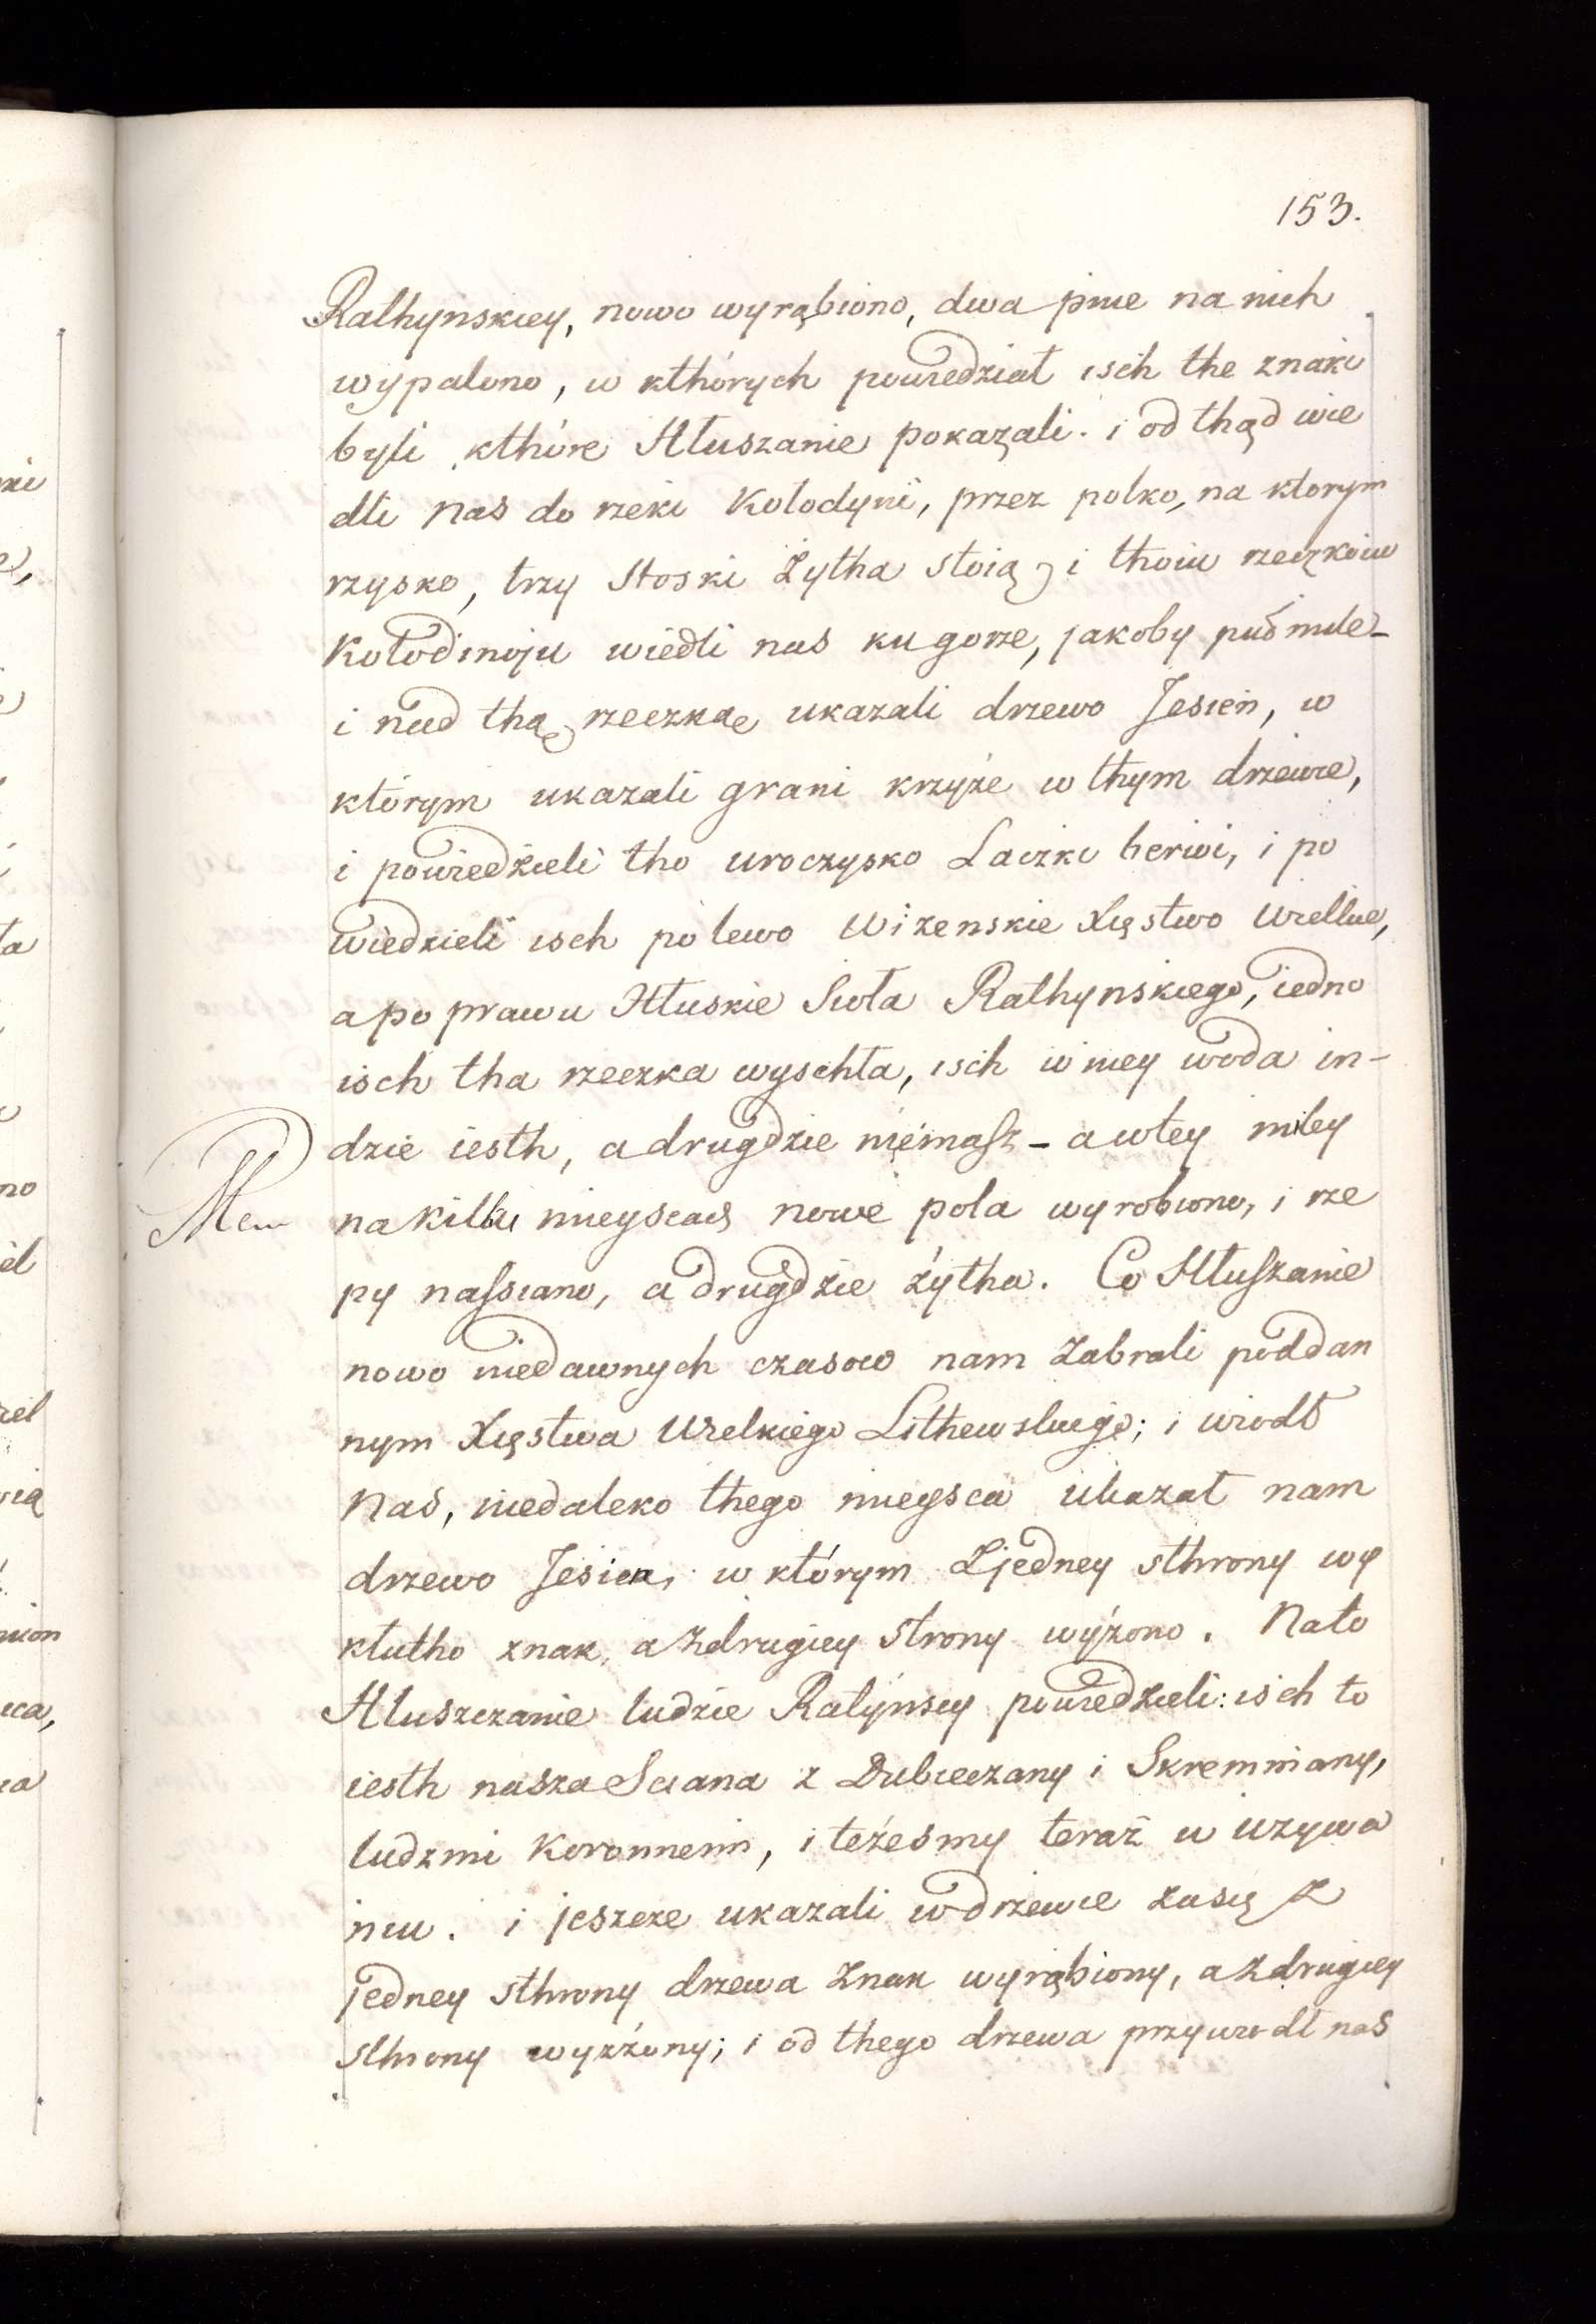 153.
Rathynskiey, nowo wyrąbiono, dwa pnie na nich
wypalono, w kthórych powiedział isch the znaki
byli kthóre Hłuszanie pokazali. i od thąd wie
dli nas do rzeki Kolodyni, przez polko, na ktorym
rzysko, trzy Stoski Żytha stoią, i thoiu rzeczkoiu
Kołodinoju wiedli nas ku gorze, jakoby puł mile_
i nad thą rzeczką ukazali drzewo Jesień, w
którym ukazali grani krzyże w thym drzewie,
i powiedzieli tho uroczysko Laczki berwi, i po
wiedzieli isch po lewo Wizenskie Xięstwo Wielkie,
a po prawu Hłuskie Sioła Rathynskiego, iedno
isch tha rzeczka wyschła, isch w niey woda in-
dzie iesth, a drugdzie niemasz - a w tey miley
Mem na kilku mieyscach nowe pola wyrobiono, i rze
py nassiano, a drugdzie żytha. Co Hłuszanie
nowo niedawnych czasow nam zabrali poddan
nym Xięstwa Wielkiego Lithewskiego; i wiodł
nas, niedaleko thego mieysca ukazał nam
drzewo Jesien, w którym z jedney sthrony wy
kłutho znak, a z drugiey strony wyżono. Na to
Hłuszczanie ludzie Ratynscy powiedzieli: isch to
iesth nasza Sciana z Dubieczany i Skremmiany,
ludzmi Koronnemi, i teżesmy teraz w używa
niu. i jeszcze ukazali w drzewie zasię z
jedney sthrony drzewa znak wyrąbiony, a z drugiey
sthrony wyżżony; i od thego drzewa przywiodł nas